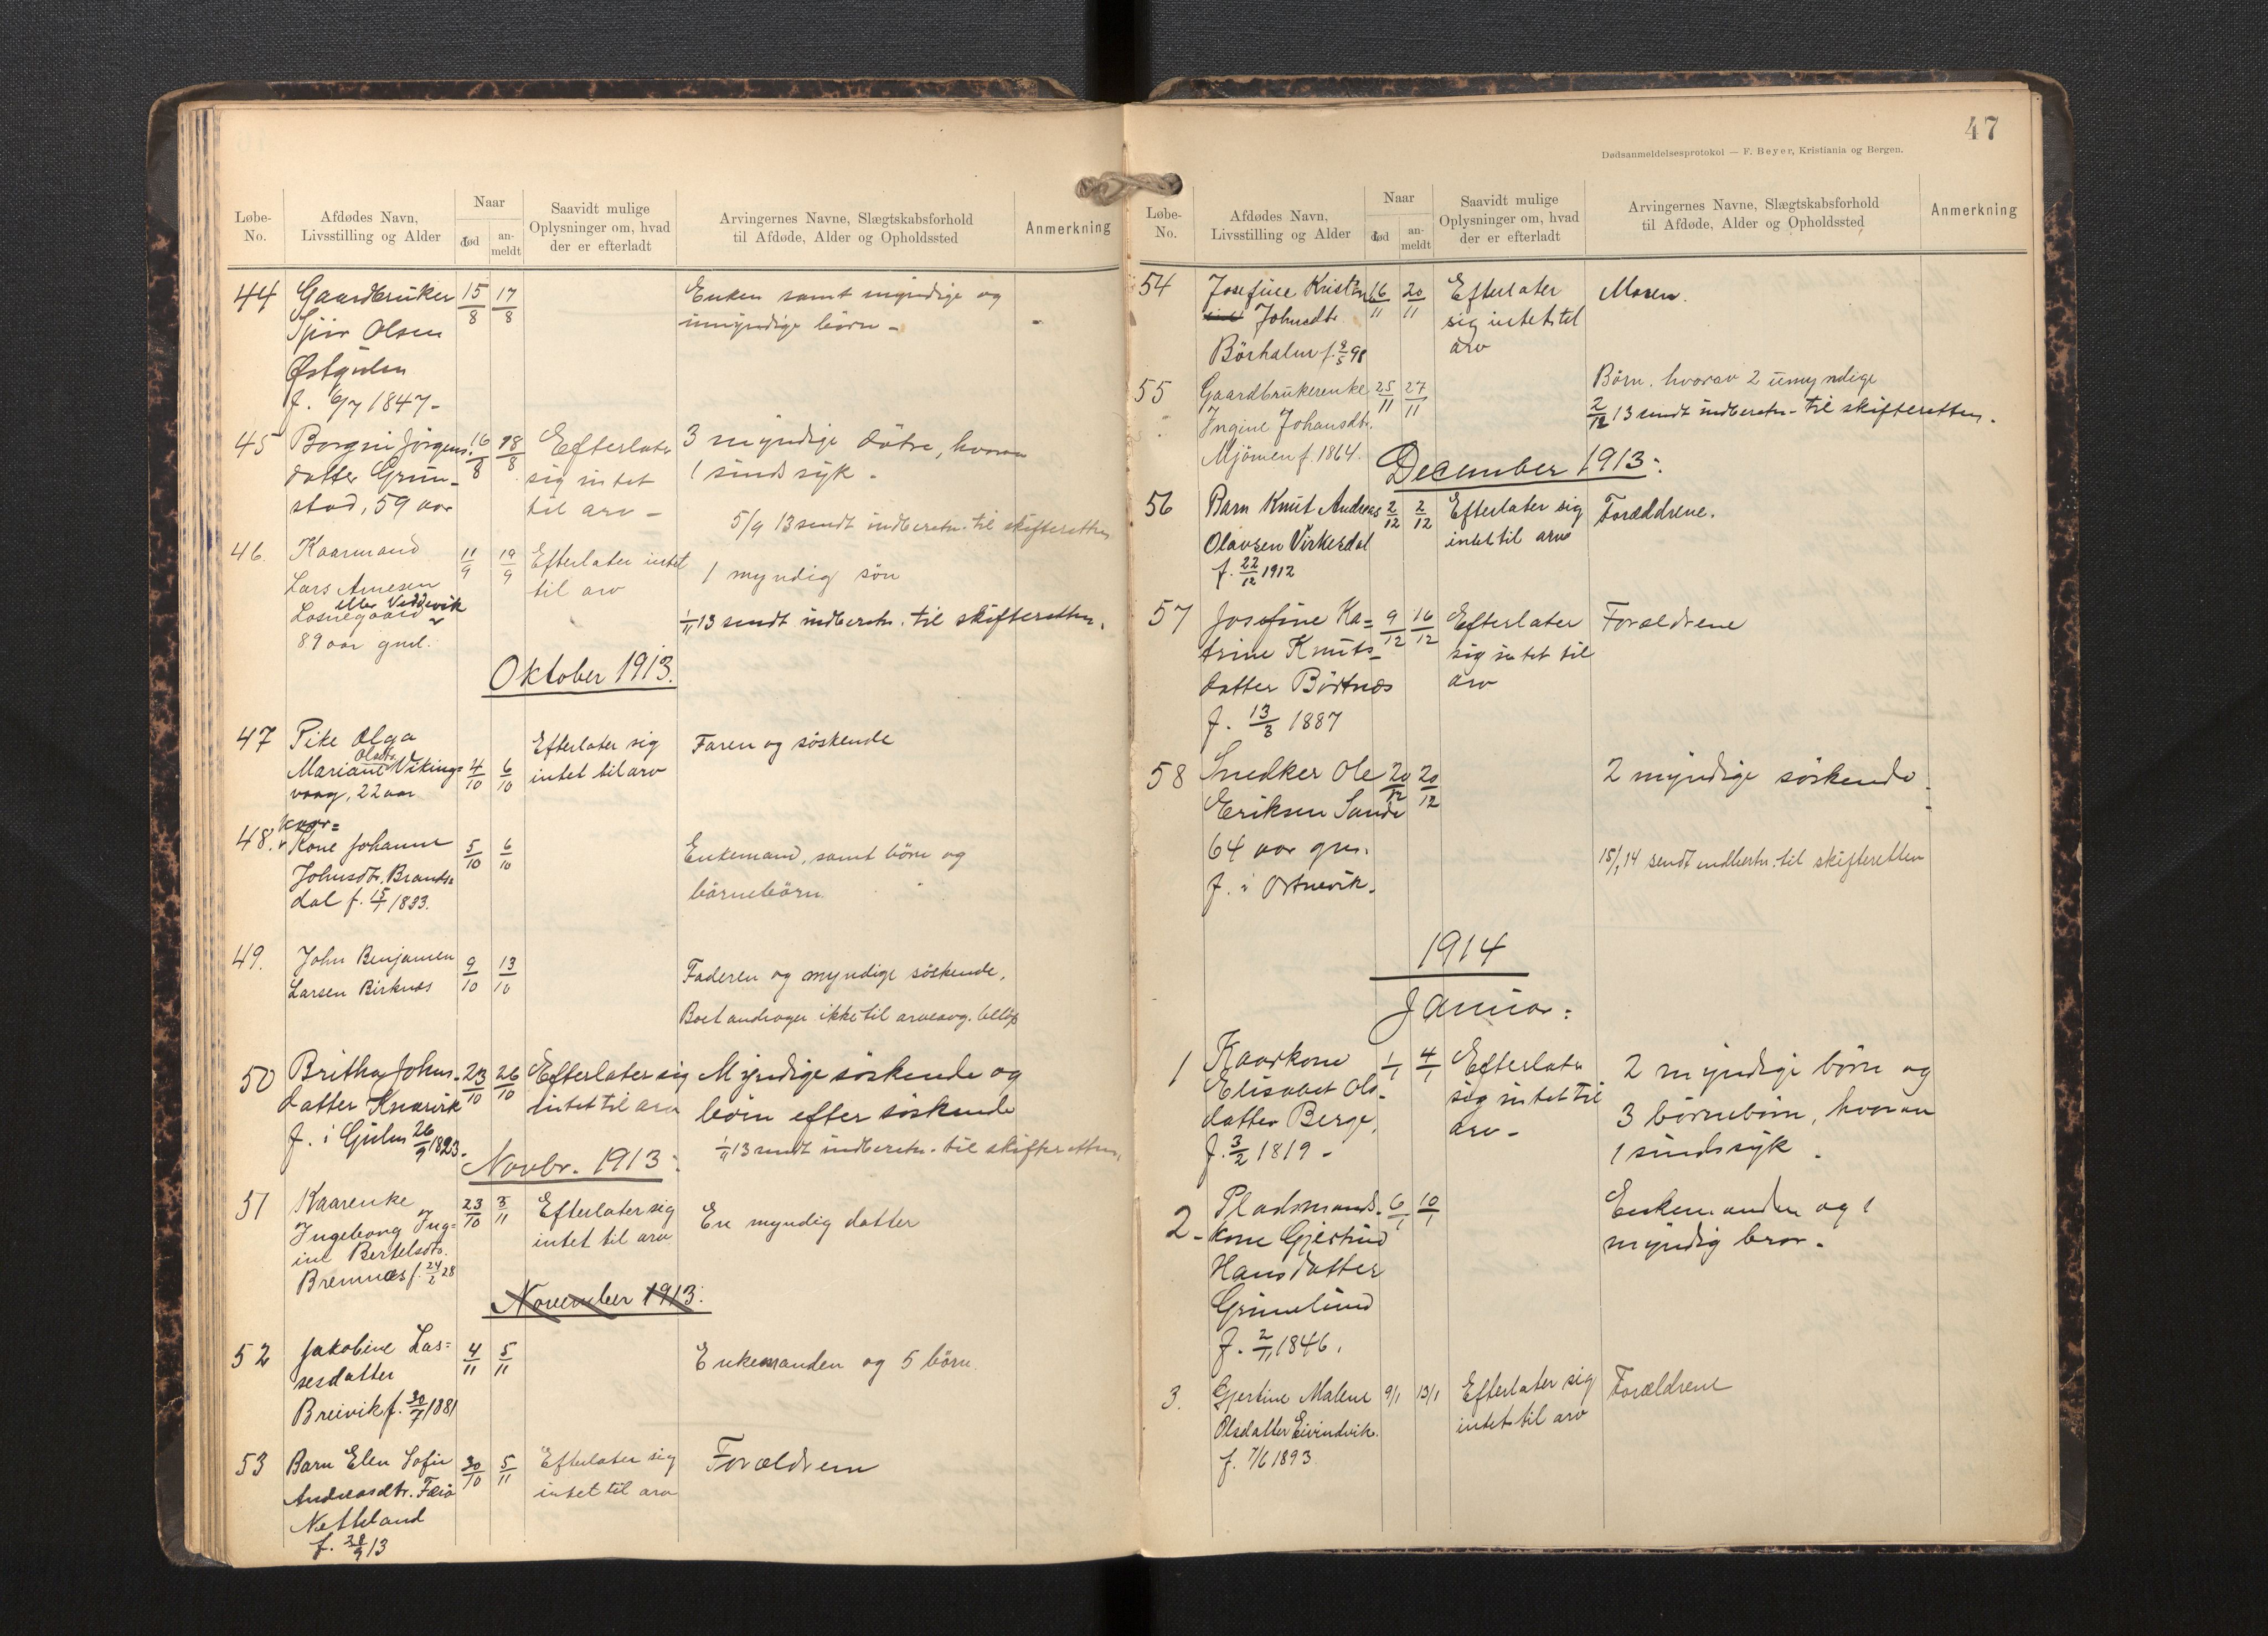 Løbe-No.
Afdødes Navn, Livsstilling og Alder
Naar
død
an-meldt
Saavidt mulige Oplysninger om, hvad der er efterladt
Arvingernes Navne, Slægtskabsforhold til Afdøde, Alder og Opholdssted
Anmerkning
44 Gaardbruker 15/8 17/8 Enken samt myndige og
Sjur Olsen umyndige børn -
Østgulen
f. 6/7 1847 -
45 Borgni Jørgens- 16/8 18/8 Efterlater 3 myndige døtre, hvorav
datter Grin- sig intet 1 sindssyk -
stad, 59 aar til arv -
5/9 13 sendt indberetn. til skifteretten
46. Kaarmand 11/9 19/9 Efterlater intet 1 myndig søn
Lars Arnesen til arv
eller Veddevik
Losnegaard 1/11 13 sendt indberetn. til skifteretten.
89 aar gml.
Oktober 1913.
47 Pike Olga Efterlater sig Faren og søskende
Olsdtr.
Mariane Viking- 4/10 6/10 intet til arv
vaag, 22 aar
Kaar=
48. Kone Johanne 5/10 6/10 Enkemand, samt børn og
Johnsdtr. Brands= børnebørn.
dal f. 15/1 1833.
49. John Benjamen 9/10 13/10 Faderen og myndige søskende,
Larsen Birknes Boet andrager ikke til arveavg. beløp
50 Britha Johns- 23/10 26/10 Efterlater sig Myndige søskende og
datter Knarvik intet til arv børn efter søskende
f. i Gulen 26/9 1823. 1/11 13 sendt indberetn. til skifteretten.
Novbr. 1913.
51 Kaarenke 23/10 3/11 Efterlater sig En myndig datter
Ingeborg Ing= intet til arv
ine Bertelsdtr.
Bremnes f. 24/2 28
November 1913.
52 Jakobine Las= 4/11 5/11 Enkemanden og 5 børn.
sesdatter
Breivik f. 30/7 1881
53 Barn Elen Sofie 30/10 5/11 Efterlater sig Forældrene
Andreasdtr. intet til arv
Netteland
f. 28/9 13
47
Dødsanmeldelsesprotokol — F. Beyer, Kristiania og Bergen.
Løbe-No.
Afdødes Navn, Livsstilling og Alder
Naar
død
an-meldt
Saavidt mulige Oplysninger om, hvad der er efterladt
Arvingernes Navne, Slægtskabsforhold til Afdøde, Alder og Opholdssted
Anmerkning
54 Josefine 16/11 20/11 Efterlater Moren.
Johnsdtr. sig intet til
Børhalm f. 9/5 98 arv
55 Gaardbrukerenke 25/11 27/11 Børn, hvorav 2 umyndige
Ingine Johansdtr. 2/12 13 sendt indberetn. til skifteretten.
Mjømen f. 1864.
December 1913.
56 Barn Knut Andreas 2/12 2/12 Efterlater sig Forældrene.
Olavsen Virkesdal intet til arv
f. 22/12 1912
57 Josefine Ka= 9/12 16/12 Efterlater Forældrene
trine Knuts- sig intet til
datter Børtnes arv
f. 13/3 1887
58 Snedker Ole 20/12 20/12 2 myndige søskende
Eriksen Sande
64 aar gm. 15/1 14 sendt indberetn. til skifteretten
f. i Ortnevik.
1914
Januar:
1 Kaarkone 1/1 4/1 Efterlater 2 myndige børn og
Elisabet Ols- sig intet til 3 børnebørn, hvorav
datter Berge, arv - 1 sindssyk.
f. 3/2 1819 -
2- Pladsmands- 6/1 10/1 Enkemanden og 1
kone Gjertrud myndig bror.
Hansdatter
Grinelund
f. 2/11 1846.
3. Gjertine Malene 9/1 13/1 Efterlater sig Forældrene
Olsdatter Eivindvik. intet til arv
f. 7/6 1893.